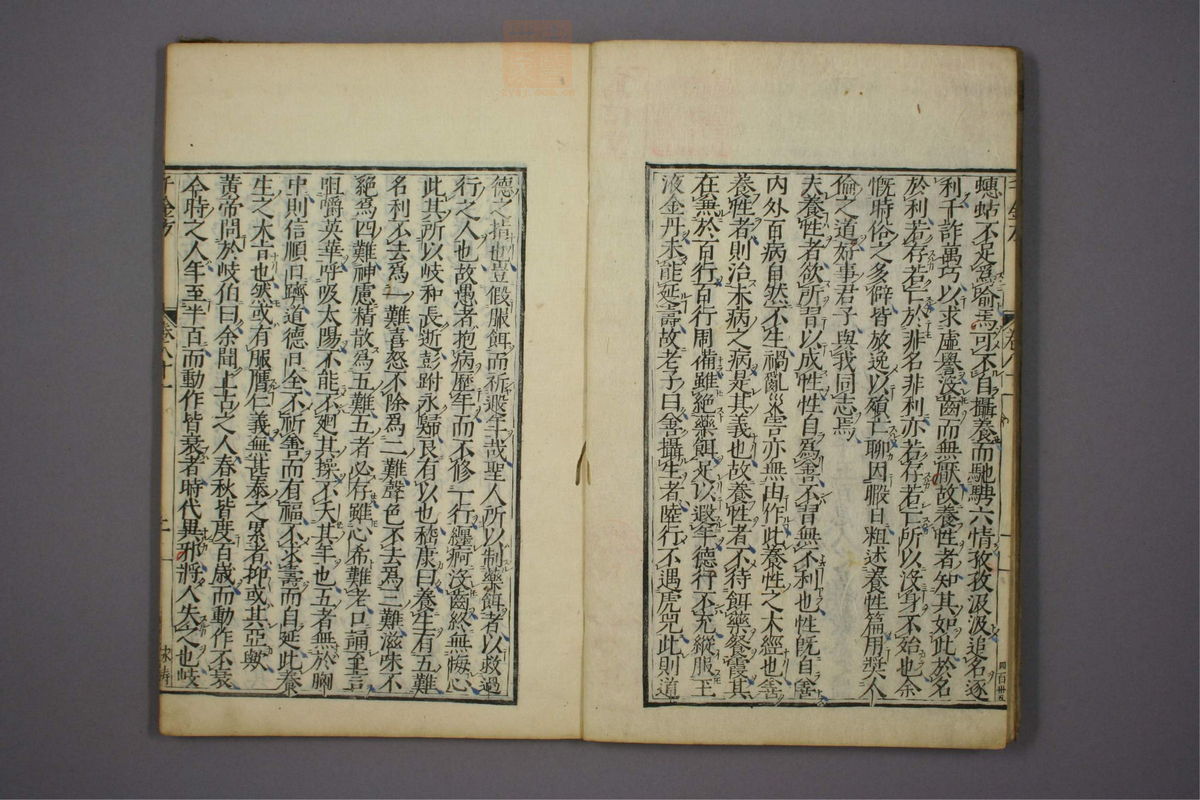 蟪蛄不足爲喻焉可不自攝養而馳騁六情孜孜汲汲追名逐
利千詐萬巧以求虛譽没齒而無厭故養性者知其如此於名
於利若存若亡於非名非利亦若存若亡所以没身不殆也余
慨時俗之多僻皆放逸以殞亡聊因暇日粗述養性篇用奬人
倫之道好事君子與我同志焉
夫養性者欲所習以成性性自爲善不習無不利也性旣自善
内外百病自然不生禍亂災害亦無由作此養性之大經也善
養性者則治未病之病是其義也故養性者不但餌藥餐霞其
在兼於百行百行周備雖絶藥餌足以遐年德行不充縱服玉
液金丹未能延壽故老子曰善攝生者陸行不遇虎兕此則道
德之指也豈假服餌而祈遐年哉聖人所以制藥餌者以救過
行之人也故愚者抱病歷年而不修一行纏痾没齒終無悔心
此其所以岐和長逝彭跗永歸良有以也嵇康曰養生有五難
名利不去爲一難喜怒不除爲二難聲色不去爲三難滋味不
絶爲四難神慮精散爲五難五者必存雖心希難老口誦至言
咀嚼英華呼吸太陽不能不廻其操不夭其年也五者無於胸
中則信順日躋道德日全不祈善而有福不求壽而自延此養
生之大旨也然或有服膺仁義無甚泰之累者抑或其亞歟
黄帝問於岐伯曰余聞上古之人春秋皆度百歲而動作不衰
今時之人年至半百而動作皆衰者時代異邪將人失之也岐
千金方
卷八十一
二